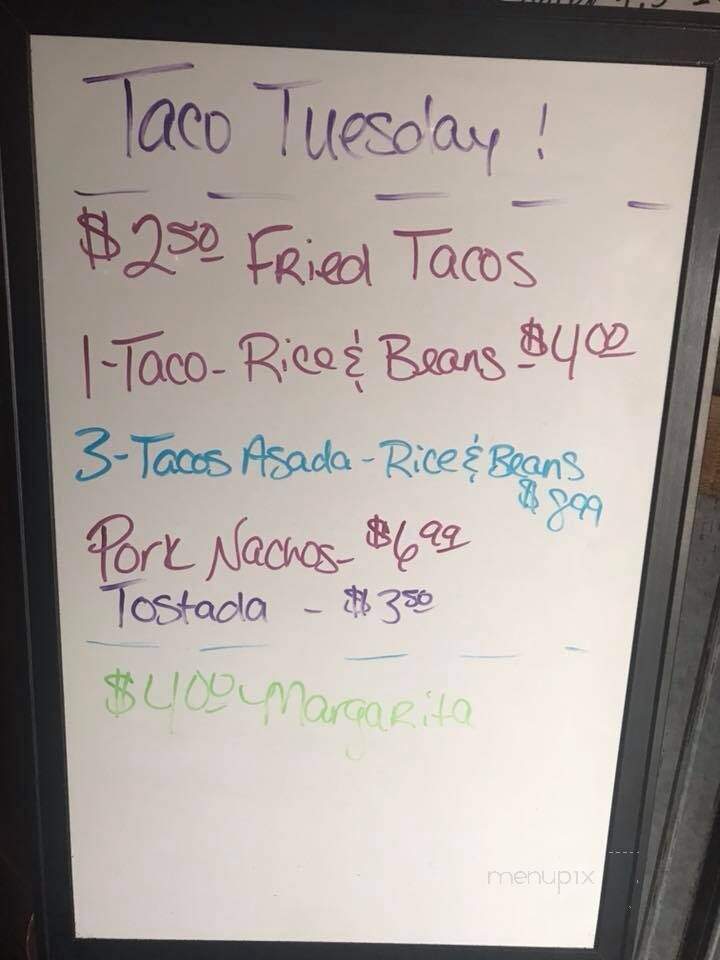 Taco Tuesday!
$2.50 Fried Tacos
1-Taco-Rice & Beans $4.00
3-Tacos Asada-Rice & Beans
$8.99
Pork Nachos-$6.99
Tostada - $3.50
$4.00 Margarita
menupix